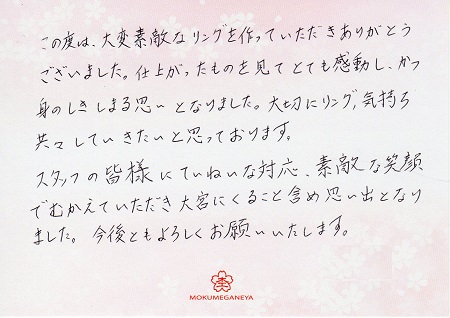 この度は、大変素敵なリングを作っていただきありがとう
ございました。仕上がったものを見てとても感動し、かつ
身のしきしまる思いとなりました。大切にリング、気持ち
共々していきたいと思っております。
スタッフの皆様にていねいな対応、素敵な笑顔
でむかえていただき大宮にくること含め思い出となり
ました。今後ともよろしくお願いいたします。
MOKUMEGANEYA